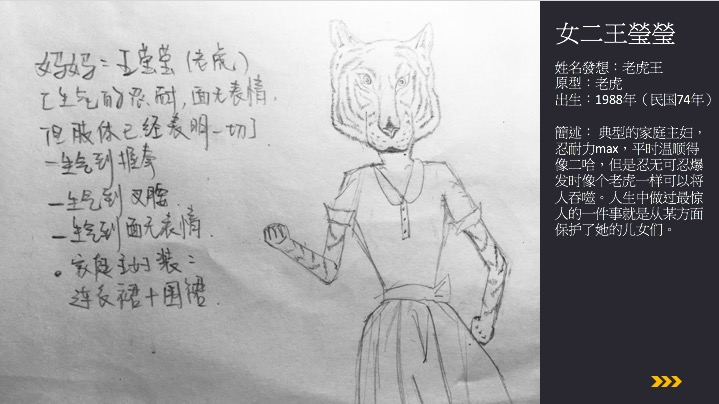 妈妈：王莹莹(老虎)
[生气的忍耐,面无表情.
但肢体已经表明一切]
—生气到推拳
—生气到叉腰
—生气到面无表情.
。家庭主妇装：
连衣裙+围裙.
女二王瑩瑩
姓名發想：老虎王
原型：老虎
出生：1988年（民国74年）
簡述： 典型的家庭主妇，
忍耐力max，平时温顺得
像二哈，但是忍无可忍爆
发时像个老虎一样可以将
人吞噬。人生中做过最惊
人的一件事就是从某方面
保护了她的儿女们。